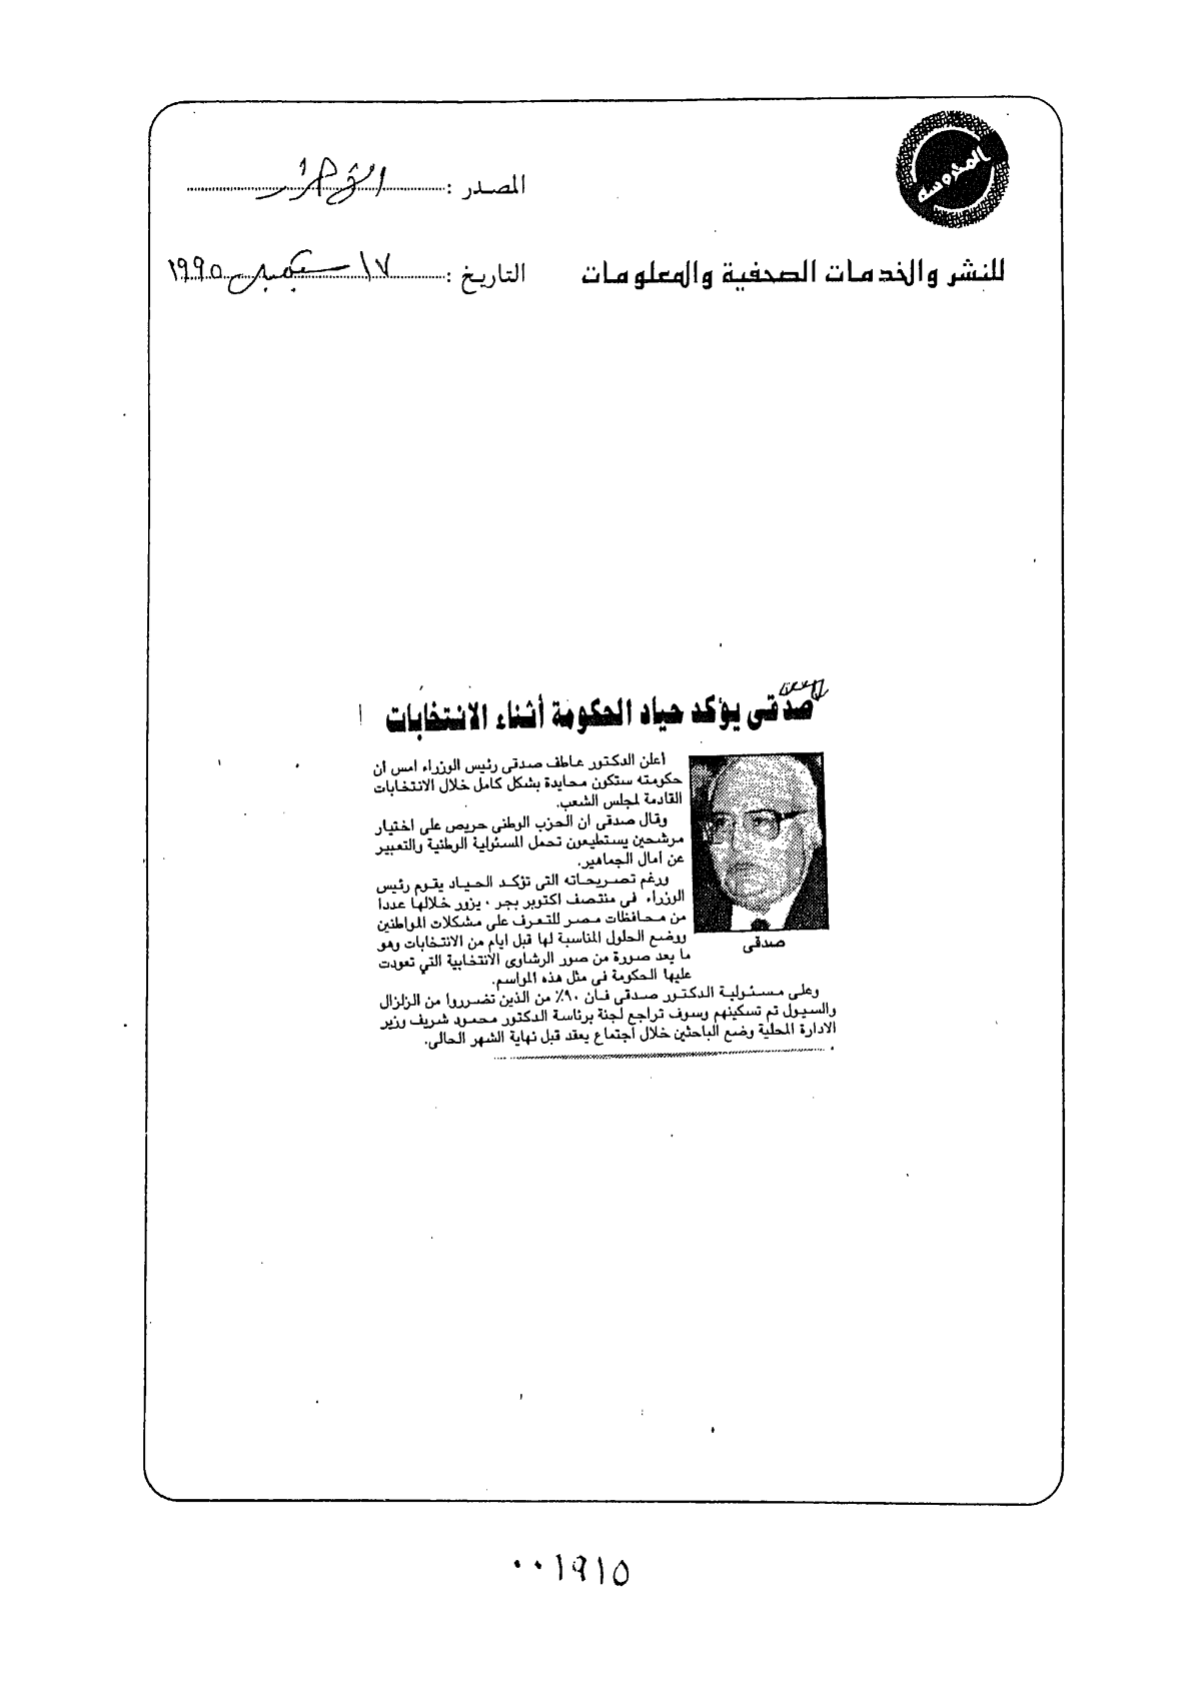 المحروسة
المصدر : الأحرار
للنشر والخدمات الصحفية والمعلومات
التاريخ : ١٧ سبتمبر ١٩٩٥
صدقى يؤكد حياد الحكومة أثناء الانتخابات
أعلن الدكتور عاطف صدقى رئيس الوزراء امس ان
حكومته ستكون محايدة بشكل كامل خلال الانتخابات
القادمة لمجلس الشعب.
وقال صدقى ان الحزب الوطنى حريص على اختيار
مرشحين يستطيعون تحمل المسئولية الوطنية والتعبير
عن امال الجماهير.
ورغم تصريحاته التى تؤكد الحياد يقوم رئيس
الوزراء فى منتصف اكتوبر يزور خلالها عددا
من محافظات مصر للتعرف على مشكلات المواطنين
ووضع الحلول المناسبة لها قبل ايام من الانتخابات وهو
ما يعد صورة من صور الرشاوى الانتخابية التي تعودت
عليها الحكومة فى مثل هذه المواسم.
صدقى
وعلى مسئولية الدكتور صدقى فان ٩٠٪ من الذين تضرروا من الزلزال
والسيول تم تسكينهم وسوف تراجع لجنة برئاسة الدكتور محمود شريف وزير
الادارة المحلية وضع الباحثين خلال اجتماع يعقد قبل نهاية الشهر الحالى.
٠٠١٩١٥